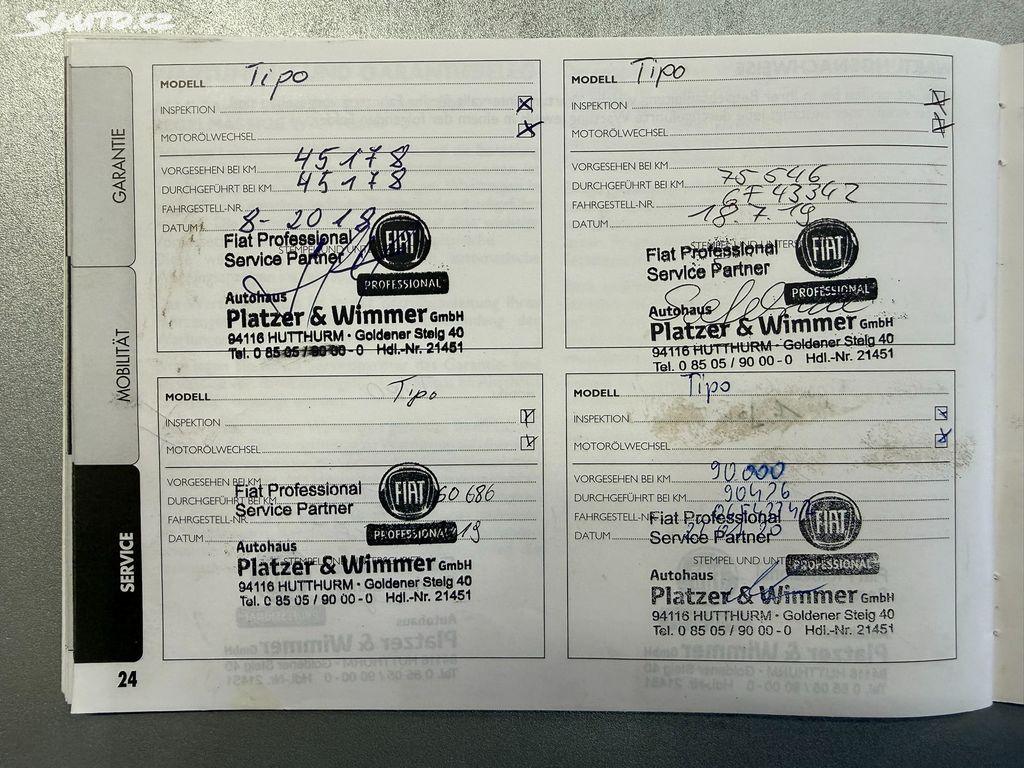 SAUTO.CZ
GARANTIE
MOBILITÄT
SERVICE
24
MODELL Tipo
INSPEKTION X
MOTORÖLWECHSEL X
VORGESEHEN BEI KM 45178
DURCHGEFÜHRT BEI KM 45178
FAHRGESTELL-NR.
DATUM 8-2018
Fiat Professional
Service Partner
FIAT
PROFESSIONAL
Autohaus
Platzer & Wimmer GmbH
94116 HUTTHURM · Goldener Steig 40
Tel. 0 85 05 / 90 00 - 0 Hdl.-Nr. 21451
MODELL Tipo
INSPEKTION X
MOTORÖLWECHSEL X
VORGESEHEN BEI KM
DURCHGEFÜHRT BEI KM 75646
FAHRGESTELL-NR. 6F43342
DATUM 18 7 19
Fiat Professional
Service Partner
FIAT
PROFESSIONAL
Autohaus
Platzer & Wimmer GmbH
94116 HUTTHURM · Goldener Steig 40
Tel. 0 85 05 / 90 00 - 0 Hdl.-Nr. 21451
MODELL Tipo
INSPEKTION X
MOTORÖLWECHSEL X
VORGESEHEN BEI KM
DURCHGEFÜHRT BEI KM 60 686
FAHRGESTELL-NR.
DATUM 19
Fiat Professional
Service Partner
FIAT
PROFESSIONAL
Autohaus
Platzer & Wimmer GmbH
94116 HUTTHURM · Goldener Steig 40
Tel. 0 85 05 / 90 00 - 0 Hdl.-Nr. 21451
MODELL Tipo
INSPEKTION X
MOTORÖLWECHSEL X
VORGESEHEN BEI KM 90 000
DURCHGEFÜHRT BEI KM 90426
FAHRGESTELL-NR.
DATUM
STEMPEL UND
Fiat Professional
Service Partner
FIAT
PROFESSIONAL
Autohaus
Platzer & Wimmer GmbH
94116 HUTTHURM · Goldener Steig 40
Tel. 0 85 05 / 90 00 - 0 Hdl.-Nr. 21451